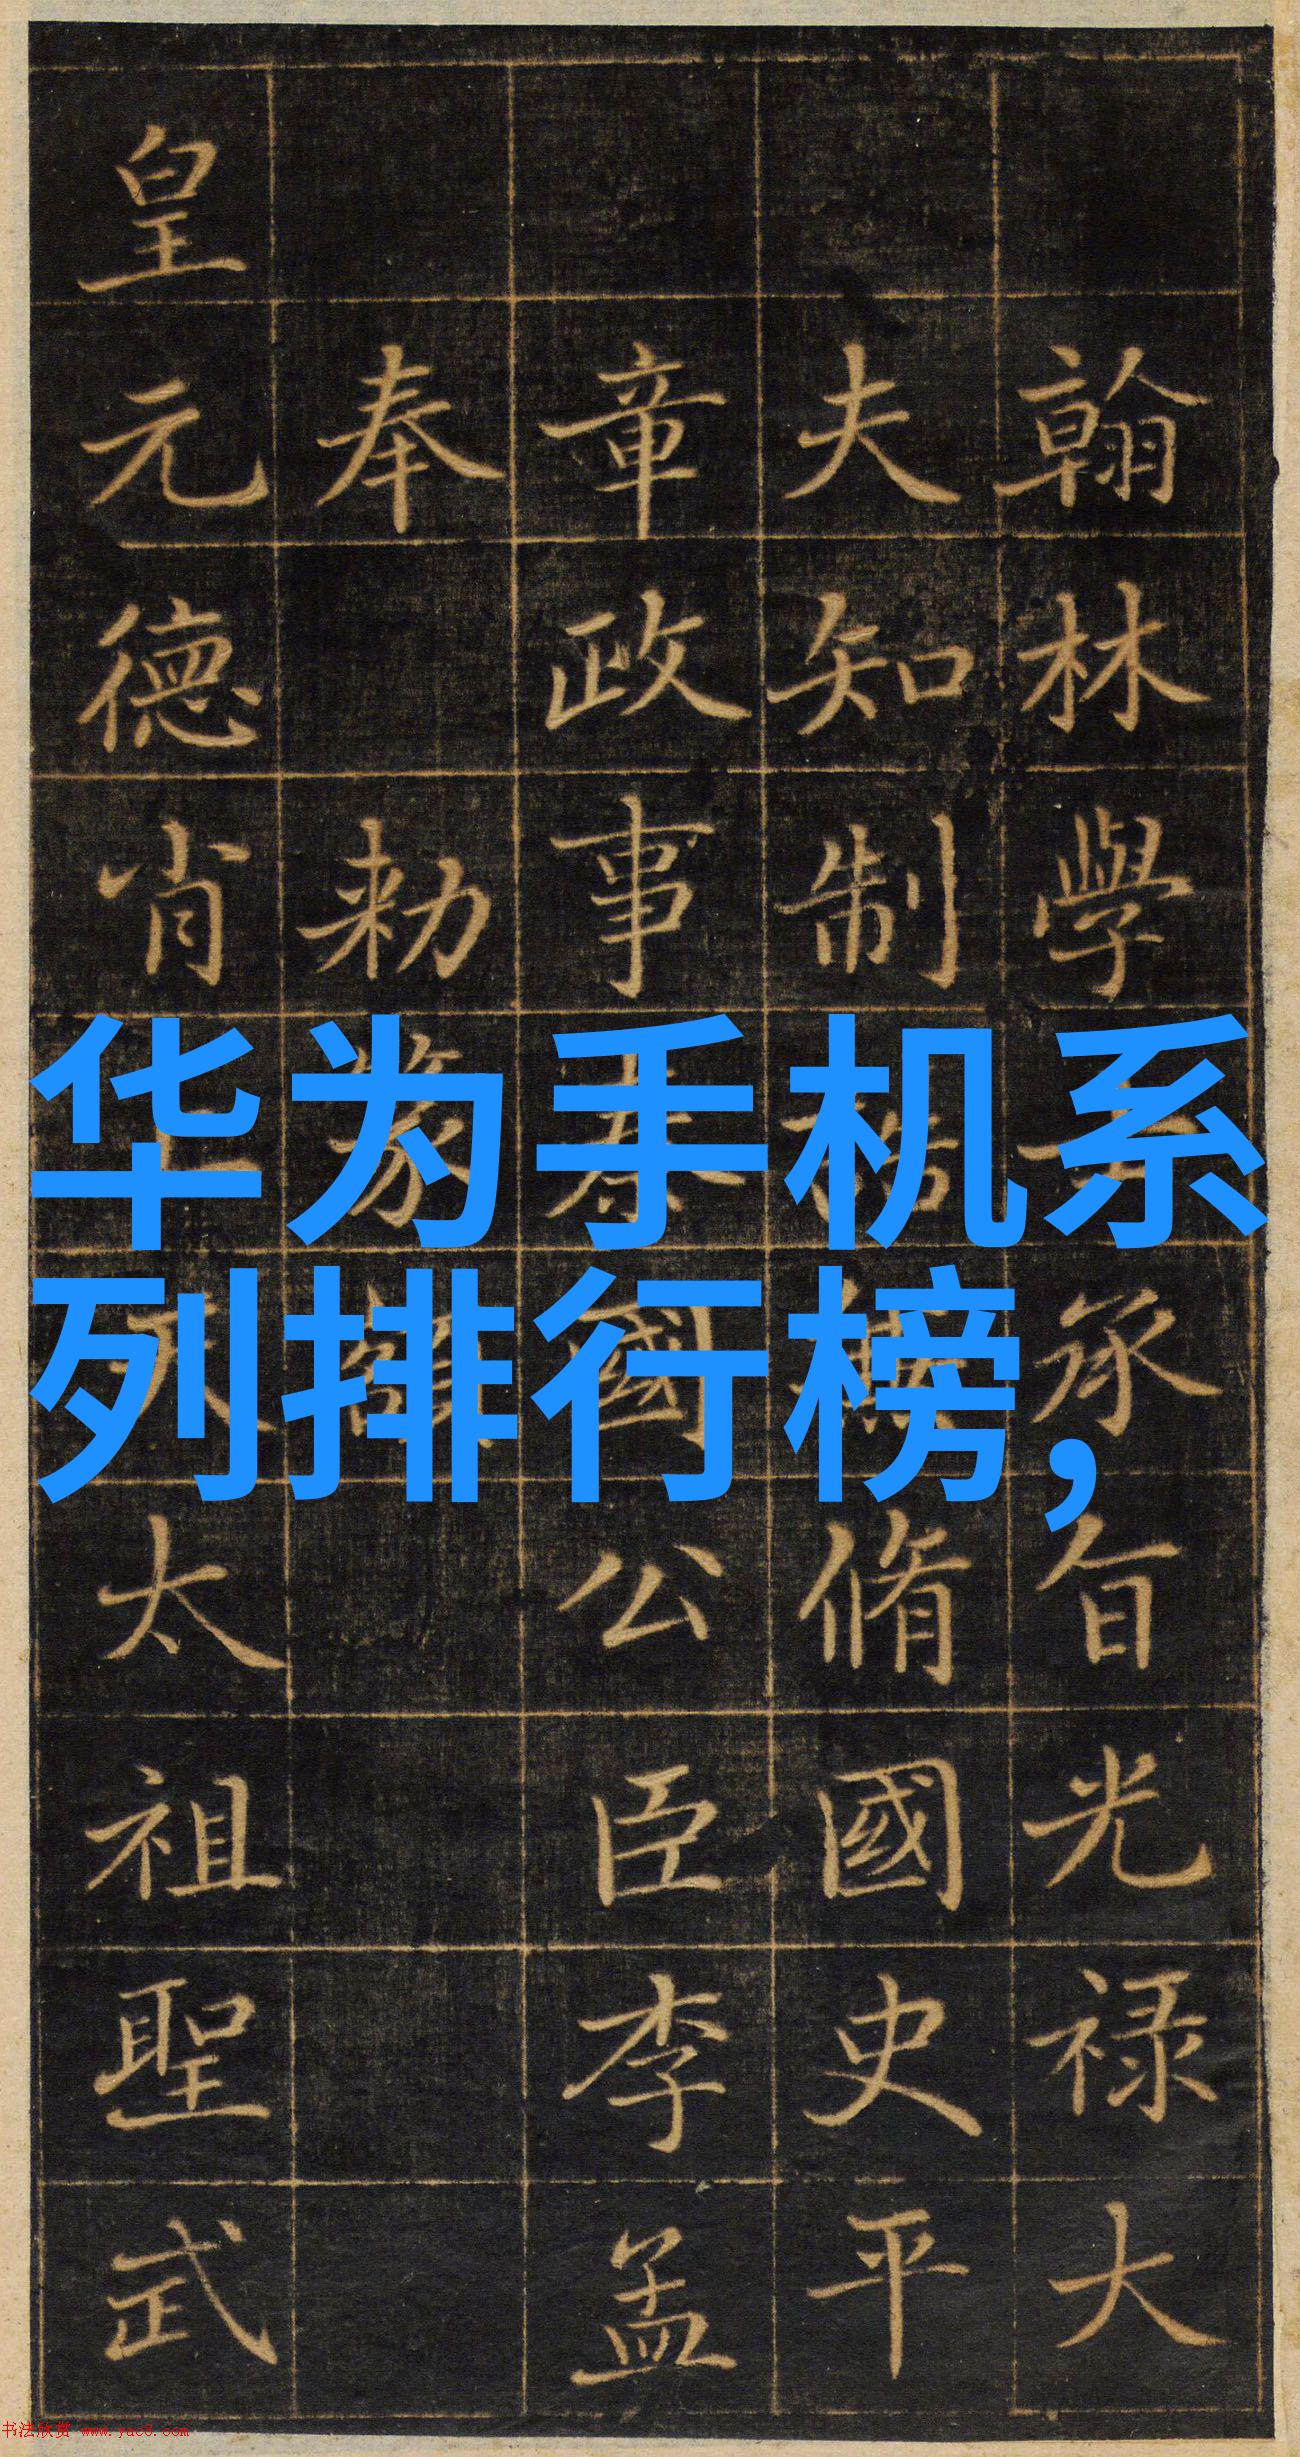 翰林學士承旨光禄大
夫知制誥兼脩國史平
章政事秦國公臣李孟
奉勅篆額
皇元德肖天太祖聖武
华为手机系
列排行榜,
书法欣赏 www.yac8.com